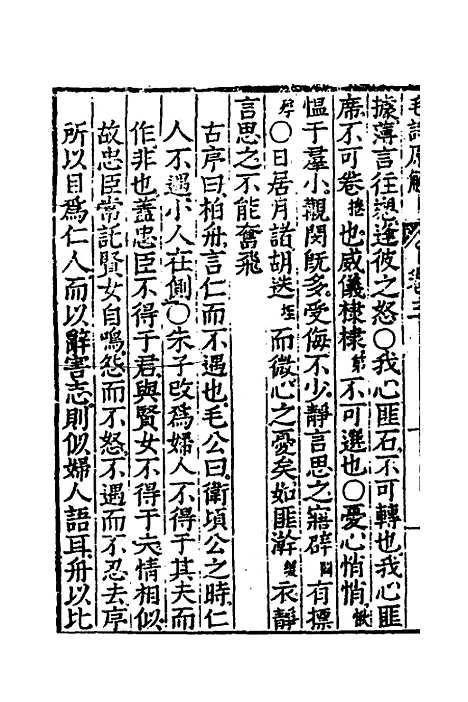 毛詩原解
據薄言往愬逢彼之怒○我心匪石不可轉也我心匪
席不可卷捲也威儀棣棣第不可選也○憂心悄悄愀
慍于羣小覯閔旣多受侮不少靜言思之寤辟闢有摽
殍○日居月諸胡迭垤而微心之憂矣如匪澣衣靜
言思之不能奮飛
古序曰柏舟言仁而不遇也毛公曰衛頃公之時仁
人不遇小人在側○朱子改爲婦人不得于其夫而
作非也蓋忠臣不得于君與賢女不得于夫情相似
故忠臣常託賢女自鳴怨而不怒不遇而不忍去序
所以目爲仁人而以辭害志則似婦人語耳舟以比